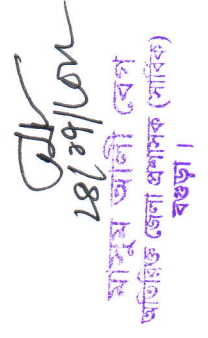 মাসুম আলী বেগ
অতিরিক্ত জেলা প্রশাসক (সার্বিক)
বগুড়া।